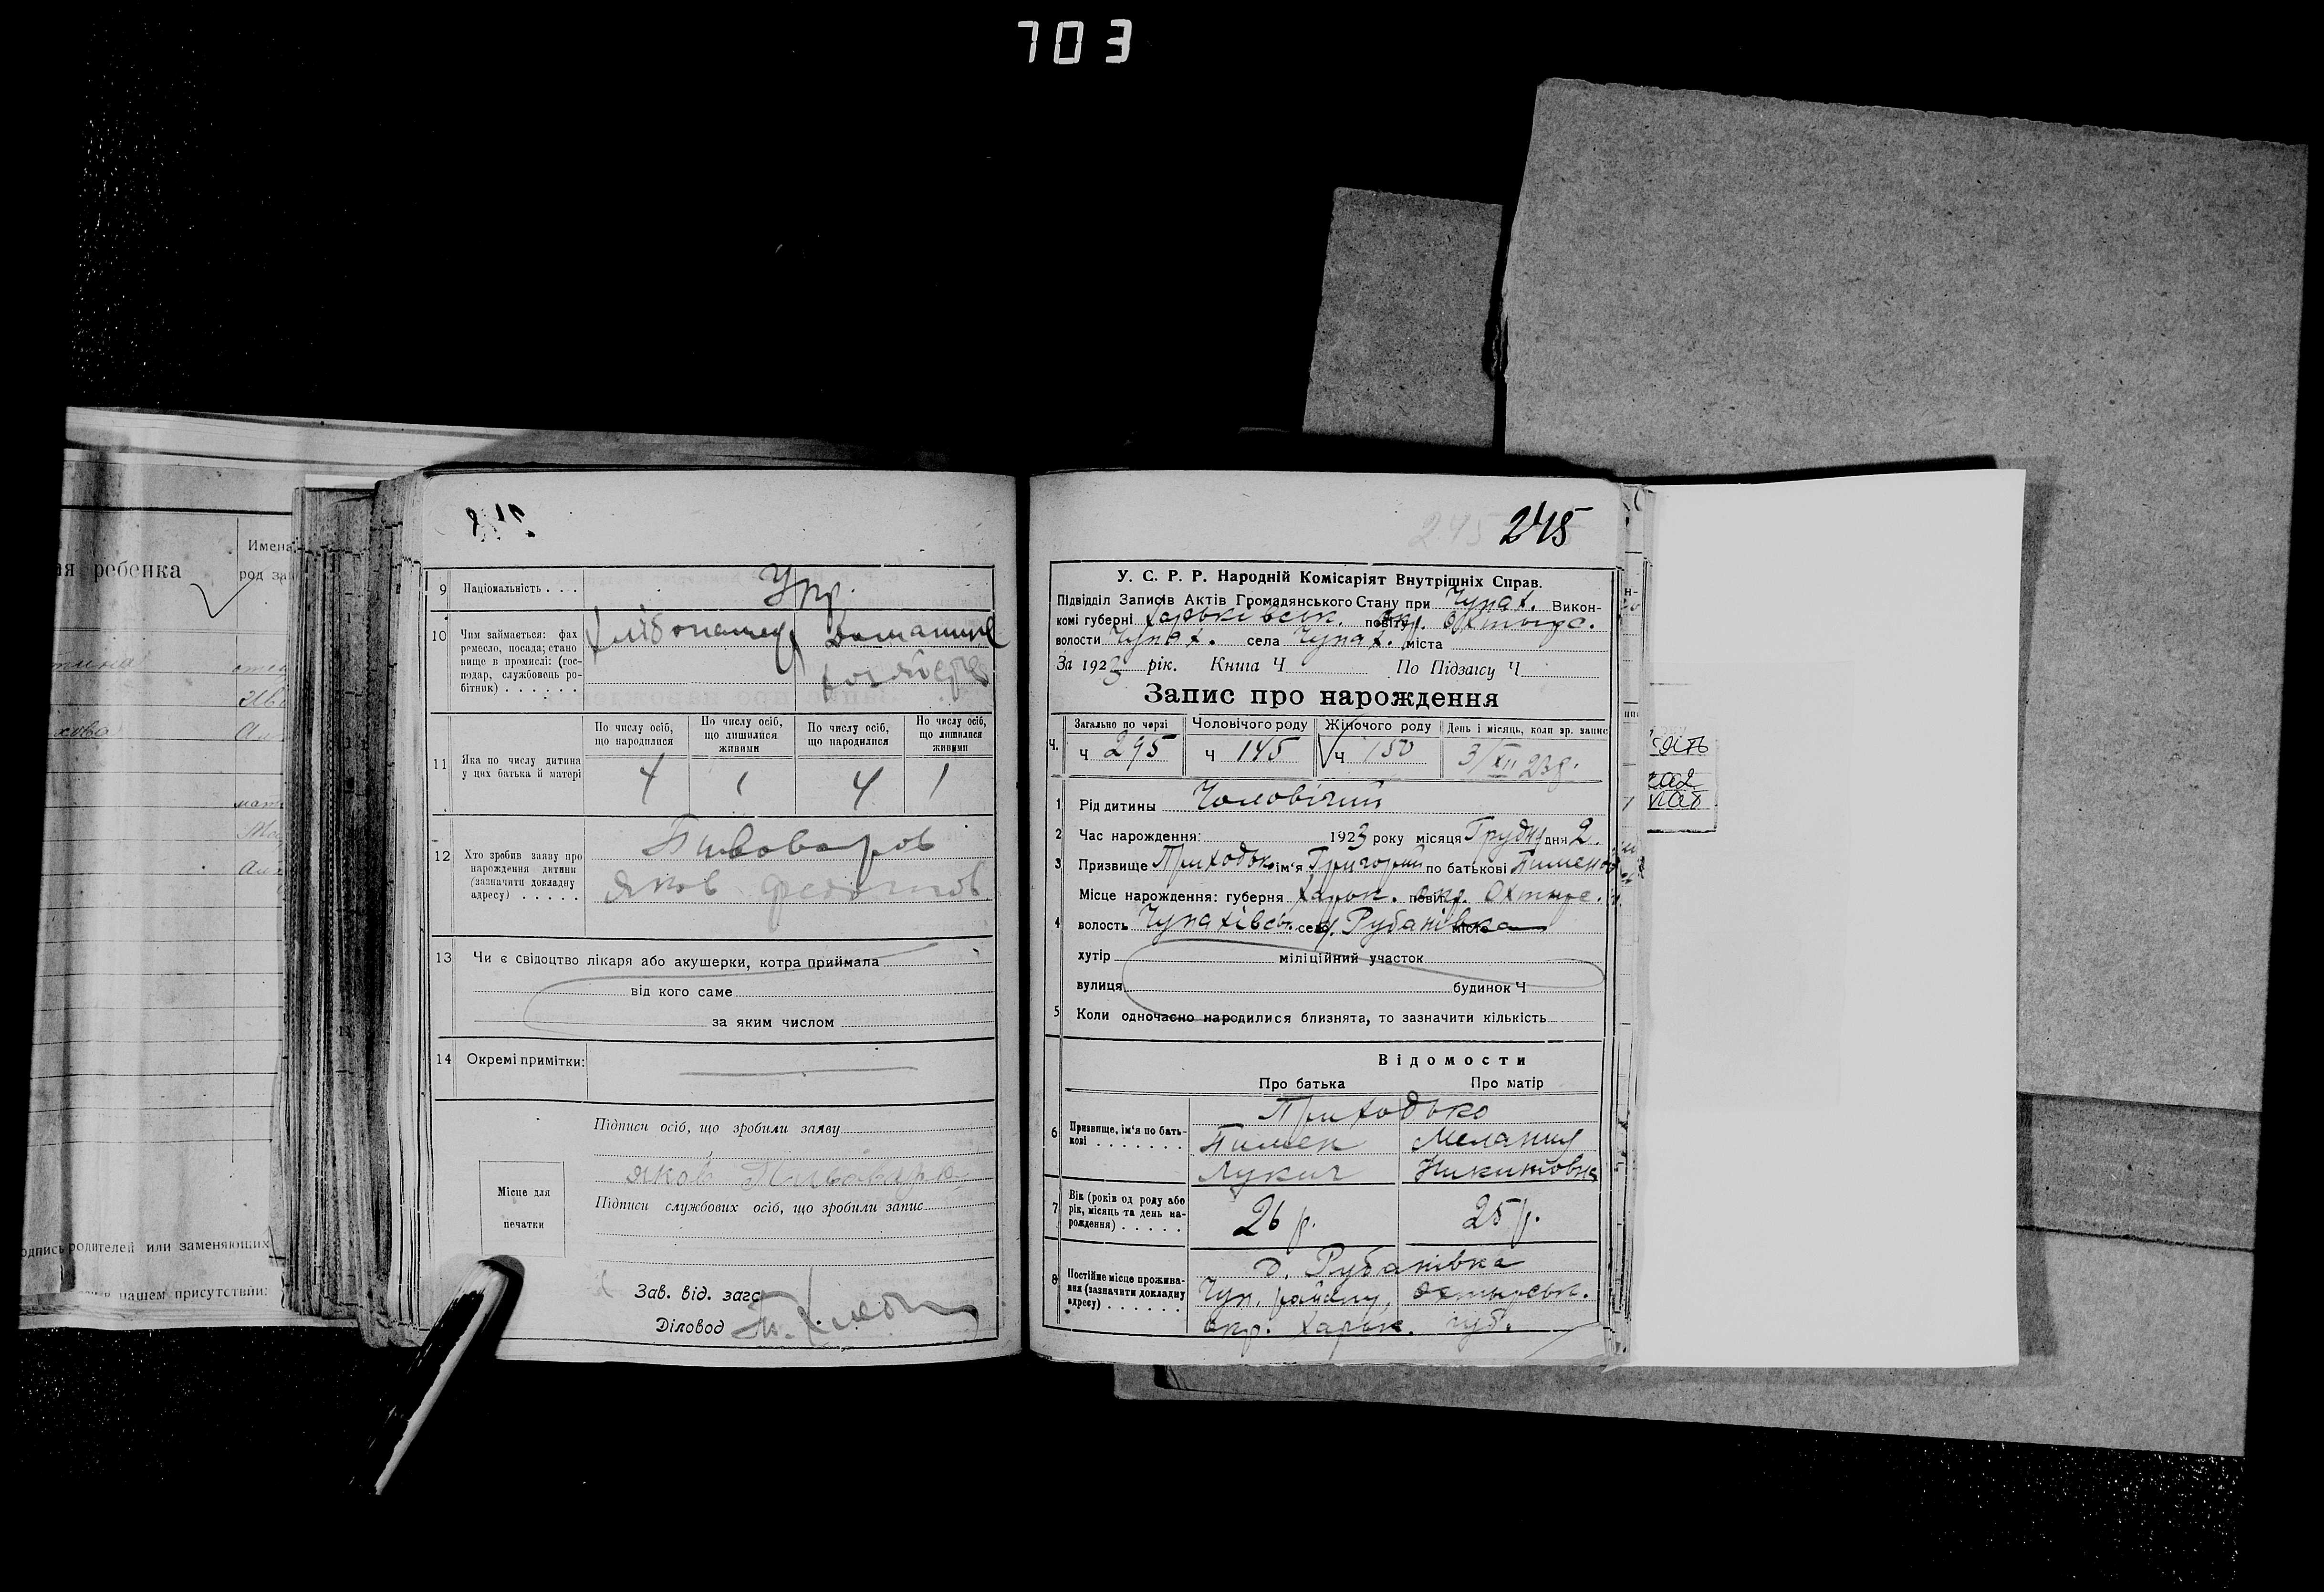 703
ая ребенка
Имена
род за
одпись родителей или заменяющих
нашем присутствии:
9 Національність . . . Укр.
10 Чим займається: фах
ремесло, посада; стано
вище в промислі: (гос-
подар, службовець ро-
бітник) . . . . . .
Хлібопашец Домашнє
хозяйство
По числу осіб, що народилися
По числу осіб, що лишилися живими
По числу осіб, що народилися
По числу осіб, що лишилися живими
11 Яка по числу дитина
у цих батька й матері
4 1 4 1
12 Хто зробив заяву про
нарождення дитини
(зазначити докладну
адресу) . . . . .
Пивоваров
Яков Федотов
13 Чи є свідоцтво лікаря або акушерки, котра приймала
від кого саме
за яким числом
14 Окремі примітки:
Підписи осіб, що зробили заяву
Яков Пивовар
Місце для
печатки
Підписи службових осіб, що зробили запис
Зав. від. загс
Діловод
245 245
У. С. Р. Р. Народній Комісаріят Внутрішніх Справ.
Підвідділ Записів Актів Громадянського Стану при Чупах. Викон-
комі губерні Харьківськ. повіту окр. Охтирс.
волости Чупах. села Чупах. міста
За 1923 рік. Книга Ч По Підзапису Ч
Запис про нарождення
Загально по черзі Чоловічого роду Жіночого роду День і місяць, коли зр. запис
Ч. ч 295 ч 145 ч 150 3/XII 23 р.
1 Рід дитини Чоловічий
2 Час нарождення: 1923 року місяця Грудня дня 2.
3 Призвище Приходько ім'я Григорий по батькові Пименов
Місце нарождення: губерня Харьк. повіт окр. Охтирс.
4 волость Чупахівськ. село д. Рубанівка міста
хутір міліційний участок
вулиця будинок Ч
5 Коли одночасно народилися близнята, то зазначити кількість
Відомости
Про батька Про матір
6 Призвище, ім'я по бать-
кові . . . . . . .
Приходько
Пимен Мелания
Лукич Никитовна
7 Вік (років од роду або
рік, місяць та день на-
рождення) . . . . .
26 р. 25 р.
8 Постійне місце прожива-
ння (зазначити докладну
адресу) . . . . . . .
д. Рубанівка
Чуп. району, Охтирськ.
окр. Харьк. губ.